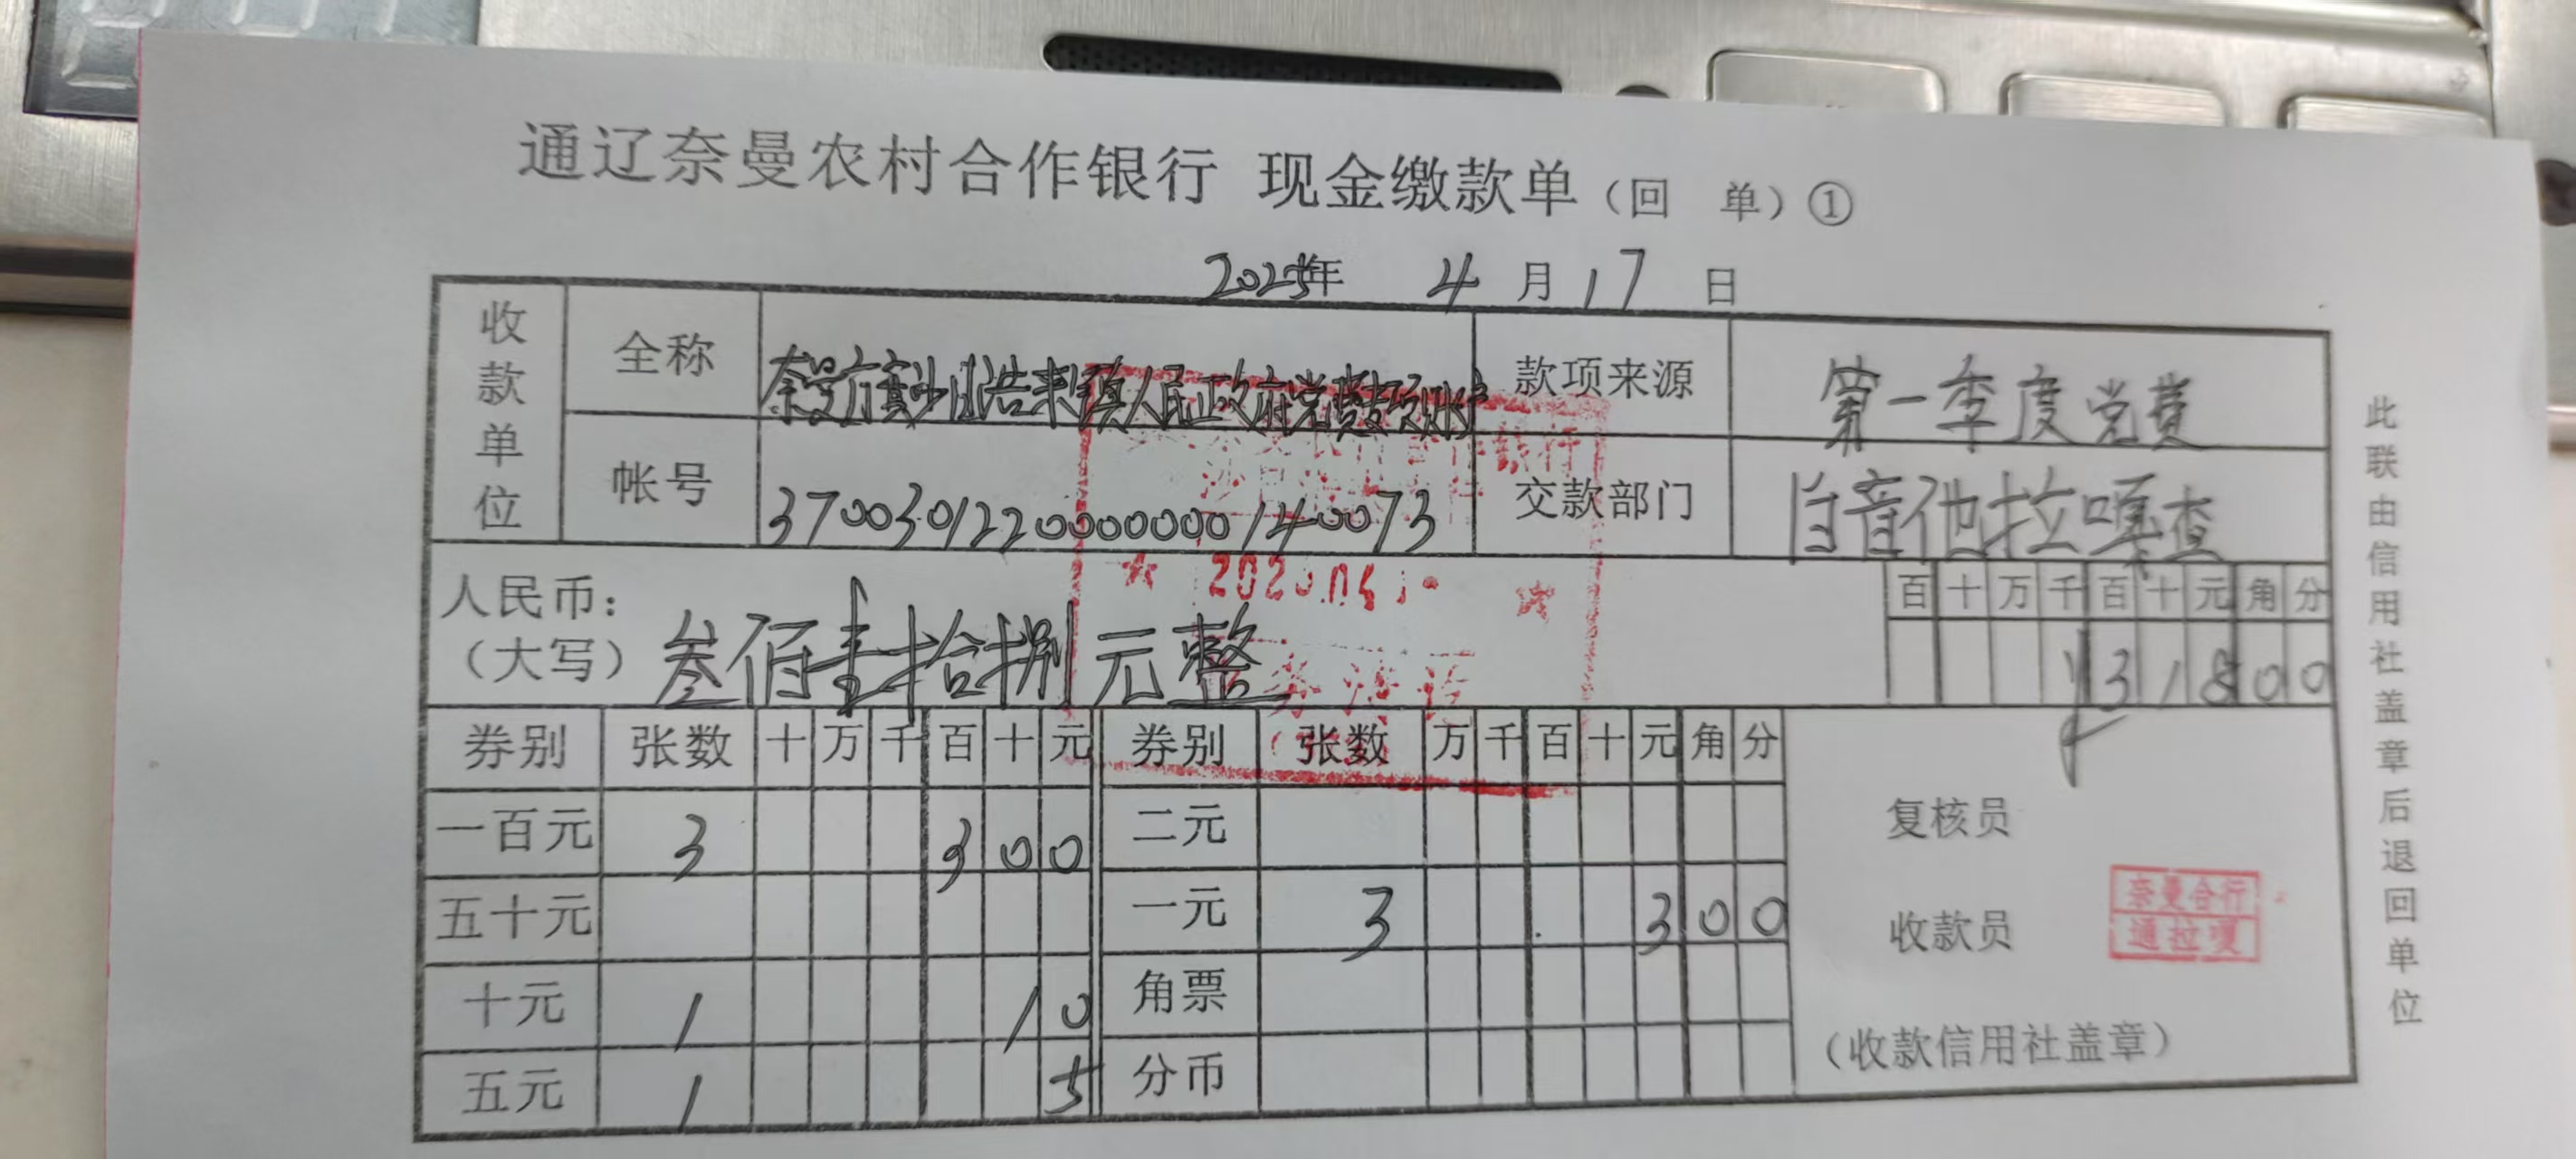 通辽奈曼农村合作银行 现金缴款单（回 单）①
2025年 4 月 17 日
收款单位 全称 奈曼旗沙日浩来镇人民政府党费专项账户 款项来源 第一季度党费
帐号 3700301220000000140073 交款部门 白音他拉嘎查
人民币：（大写） 叁佰壹拾捌元整
百 十 万 千 百 十 元 角 分
¥ 3 1 8 0 0
券别 张数 十 万 千 百 十 元 券别 张数 万 千 百 十 元 角 分
一百元 3 3 0 0 二元
五十元 一元 3 3 0 0
十元 1 1 0 角票
五元 1 5 分币
复核员
收款员
奈曼合行
通拉嘎
（收款信用社盖章）
此联由信用社盖章后退回单位